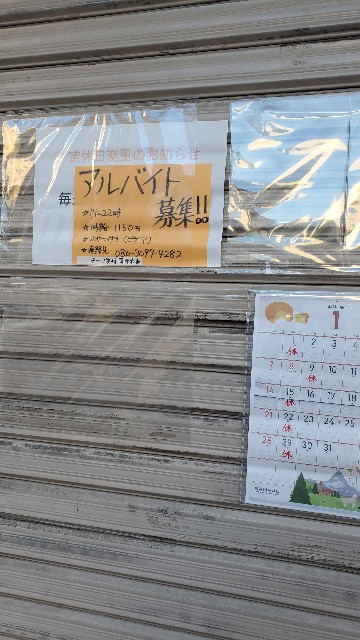 定休日変更のお知らせ
毎
アルバイト
募集!!
☆17~22時
☆時給 1150円
☆連絡先 080-3097-4282
1
1 2 3 4
休
7 8 9 10 11
休
14 15 16 17 18
休
21 22 23 24 25
休
28 29 30 31
休